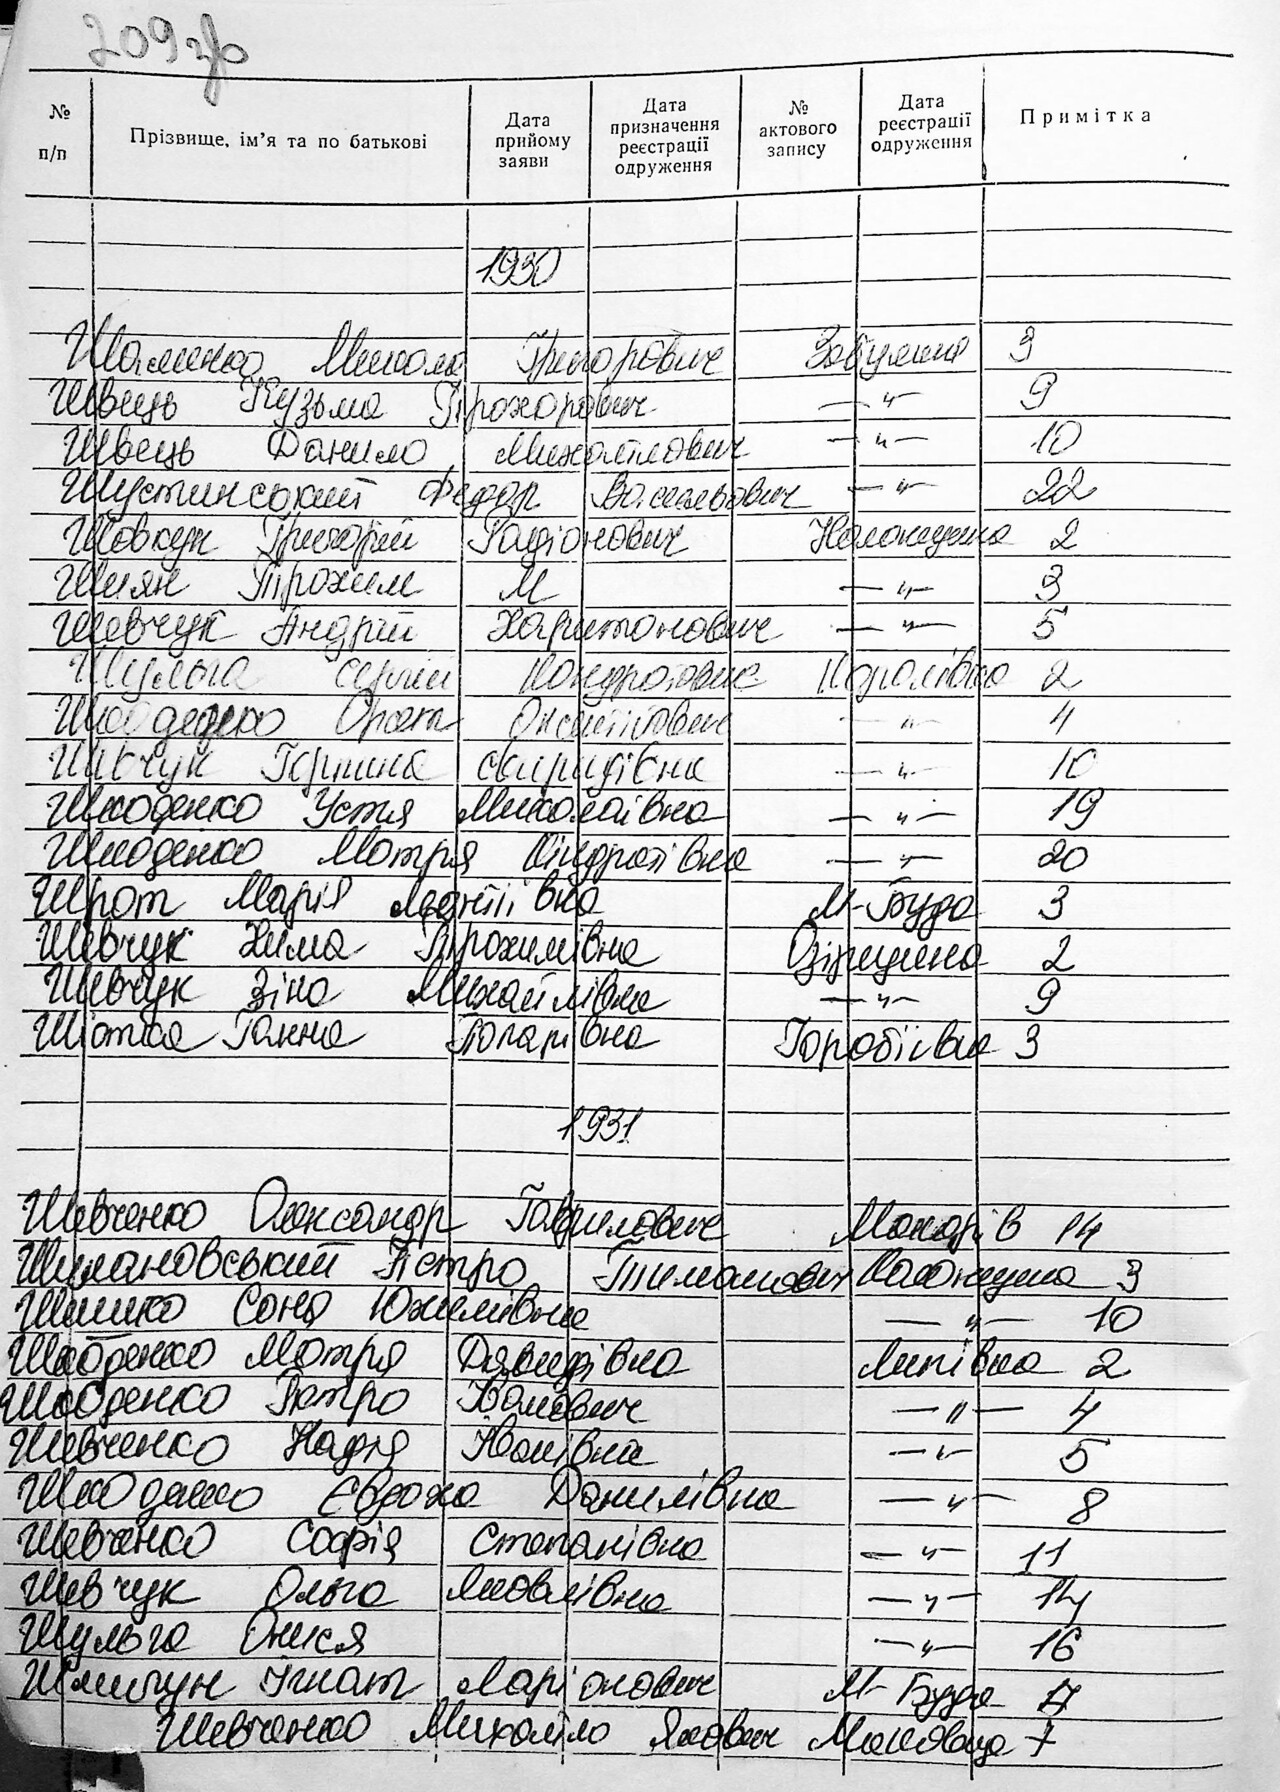 209 зв
№ п/п
Прізвище, ім'я та по батькові
Дата прийому заяви
Дата призначення реєстрації одруження
№ актового запису
Дата реєстрації одруження
Примітка
1930
Микола Григорович Забуяння 3
Швець Кузьма Прохорович —"— 9
Швець Данило Михайлович —"— 10
Шустинський Федор Васильович —"— 22
Шовкун Григорій Радіонович Наложуша 2
Шиян Трохим М —"— 3
Шевчук Андрій Харитонович —"— 5
Шульга Сергій Кондратович Королівка 2
—"— 4
Шевчук Горпина Свиридівна —"— 10
Шкоденко Устя Миколаївна —"— 19
Шкоденко Мотря Кіндратівна —"— 20
Шрот Марія М-Буда 3
Шевчук Хима Трохимівна 2
Шевчук Зіна Михайлівна —"— 9
Ганна Назарівна Горобіївка 3
1931
Шевченко Олександр Гаврилович Макарів 14
Шумановський Петро Тимофійович 3
Шишко Соня Юхимівна —"— 10
Мотря Давидівна Липівка 2
Петро Іванович —"— 4
Шевченко Надія Іванівна —"— 5
Шкоденко Євдоха Данилівна —"— 8
Шевченко Софія Степанівна —"— 11
Шевчук Ольга Яковлівна —"— 14
Шульга Онися —"— 16
Ігнат Ларіонович М-Буда 17
Шевченко Михайло Якович Маковище 7